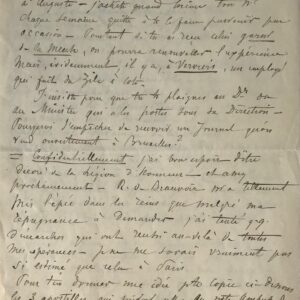 à Auguste - j'achète quand même ton N°
chaque semaine quitte à te le faire parvenir par
occasion - Pourtant si tu es bien celui garni
de la Meuse, on pourra renouveler l'expérience
mais, évidemment il y a, à Verviers, un employé
qui fait du zèle à côté.
J'insiste pour que tu te plaignes au Dr ou
au Ministre qui a les postes sous sa Direction -
Pourquoi t'empêcher de recevoir un Journal quon
vend ouvertement à Bruxelles?
= Confidentiellement, j'ai bon espoir d'être
décoré de la légion d'honneur - et assez
prochainement - R. de Beauvoir m'a tellement
mis l'épée dans les reins que malgré ma
répugnance à demander j'ai tenté qq.
démarches qui ont réussi au-delà de toutes
mes espérances - Je ne me savais vraiment pas
si estimé que cela à Paris
Pour t'en donner une idée je te copie ci-dessous
les 3 apostilles qui